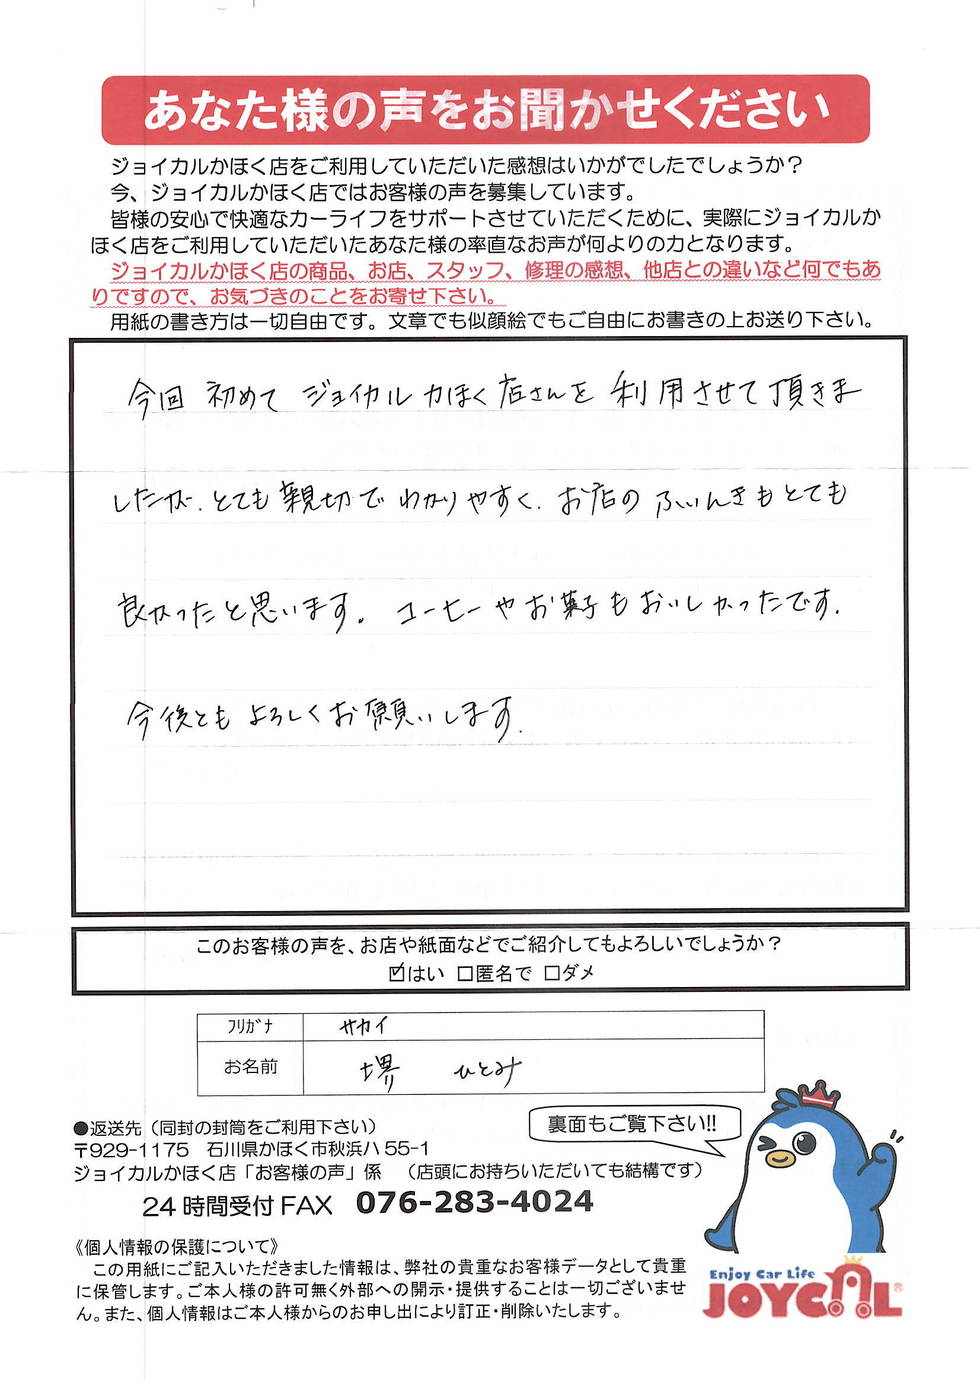 あなた様の声をお聞かせください
ジョイカルかほく店をご利用していただいた感想はいかがでしたでしょうか？
今、ジョイカルかほく店ではお客様の声を募集しています。
皆様の安心で快適なカーライフをサポートさせていただくために、実際にジョイカルか
ほく店をご利用していただいたあなた様の率直なお声が何よりの力となります。
ジョイカルかほく店の商品、お店、スタッフ、修理の感想、他店との違いなど何でもあ
りですので、お気づきのことをお寄せ下さい。
用紙の書き方は一切自由です。文章でも似顔絵でもご自由にお書きの上お送り下さい。
今回 初めて ジョイカルかほく店さんを 利用させて頂きま
したが、とても親切でわかりやすく、お店のふいんきもとても
良かったと思います。コーヒーやお菓子もおいしかったです。
今後ともよろしくお願いします。
このお客様の声を、お店や紙面などでご紹介してもよろしいでしょうか？
☑はい □匿名で □ダメ
ﾌﾘｶﾞﾅ サカイ
お名前 堺 ひとみ
裏面もご覧下さい!!
●返送先（同封の封筒をご利用下さい）
〒929-1175 石川県かほく市秋浜ハ55-1
ジョイカルかほく店「お客様の声」係 （店頭にお持ちいただいても結構です）
24時間受付FAX 076-283-4024
《個人情報の保護について》
この用紙にご記入いただきました情報は、弊社の貴重なお客様データとして貴重
に保管します。ご本人様の許可無く外部への開示・提供することは一切ございませ
ん。また、個人情報はご本人様からのお申し出により訂正・削除いたします。
Enjoy Car Life
JOYCAL®